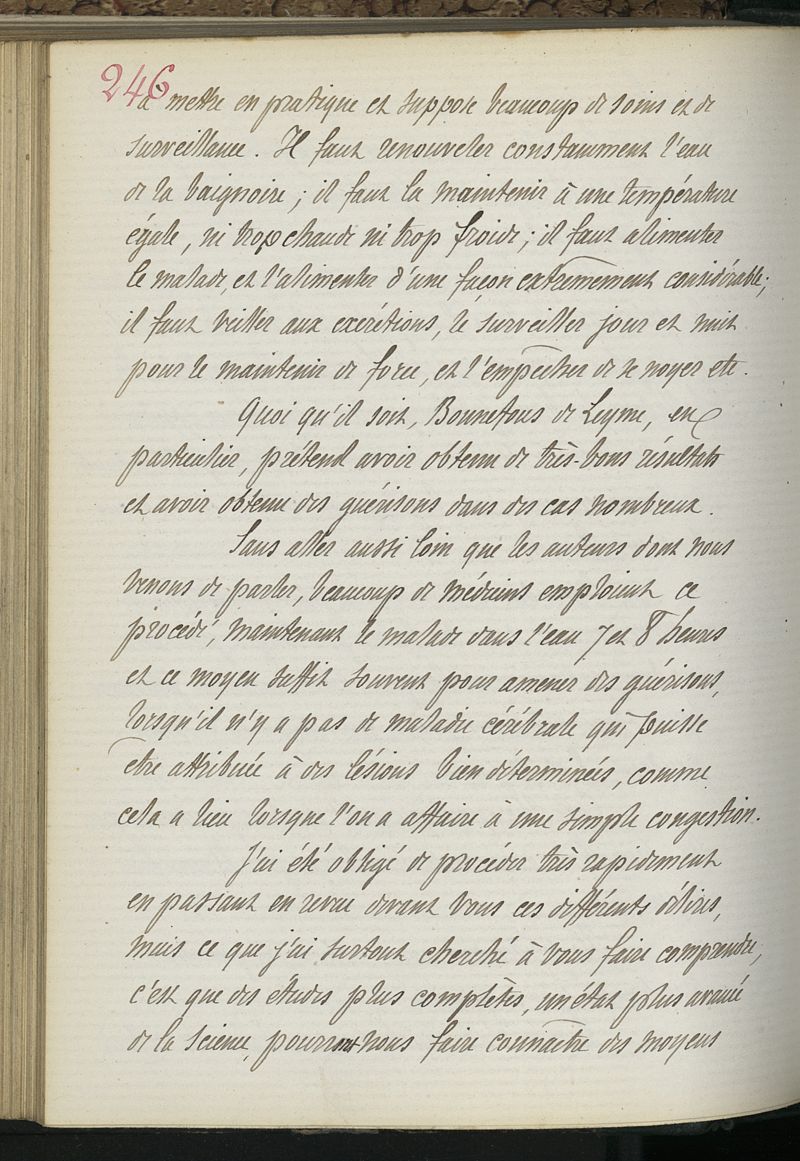 246
à mettre en pratique et suppose beaucoup de soins et de
surveillance. Il faut renouveler constamment l'eau
de la baignoire ; il faut la maintenir à une température
égale, ni trop chaude ni trop froide ; il faut alimenter
le malade, et l'alimenter d'une façon extrêmement considérable ;
il faut veiller aux excrétions, le surveiller jour et nuit
pour le maintenir de force, et l'empêcher de se noyer etc.
Quoi qu'il soit, Bonnefous de Leyme, en
particulier, prétend avoir obtenu de très-bons résultats
et avoir obtenu des guérisons dans des cas nombreux.
Sans aller aussi loin que les auteurs dont nous
venons de parler, beaucoup de médecins emploient ce
procédé, maintenant le malade dans l'eau 7 et 8 heures
et ce moyen suffit souvent pour amener des guérisons,
lorsqu'il n'y a pas de maladie cérébrale qui puisse
être attribuée à des lésions bien déterminées, comme
cela a lieu lorsque l'on a affaire à une simple congestion.
J'ai été obligé de procéder très rapidement
en passant en revue devant vous ces différents délires,
mais ce que j'ai surtout cherché à vous faire comprendre,
c'est que des études plus complètes, un état plus avancé
de la science, pourront nous faire connaître des moyens